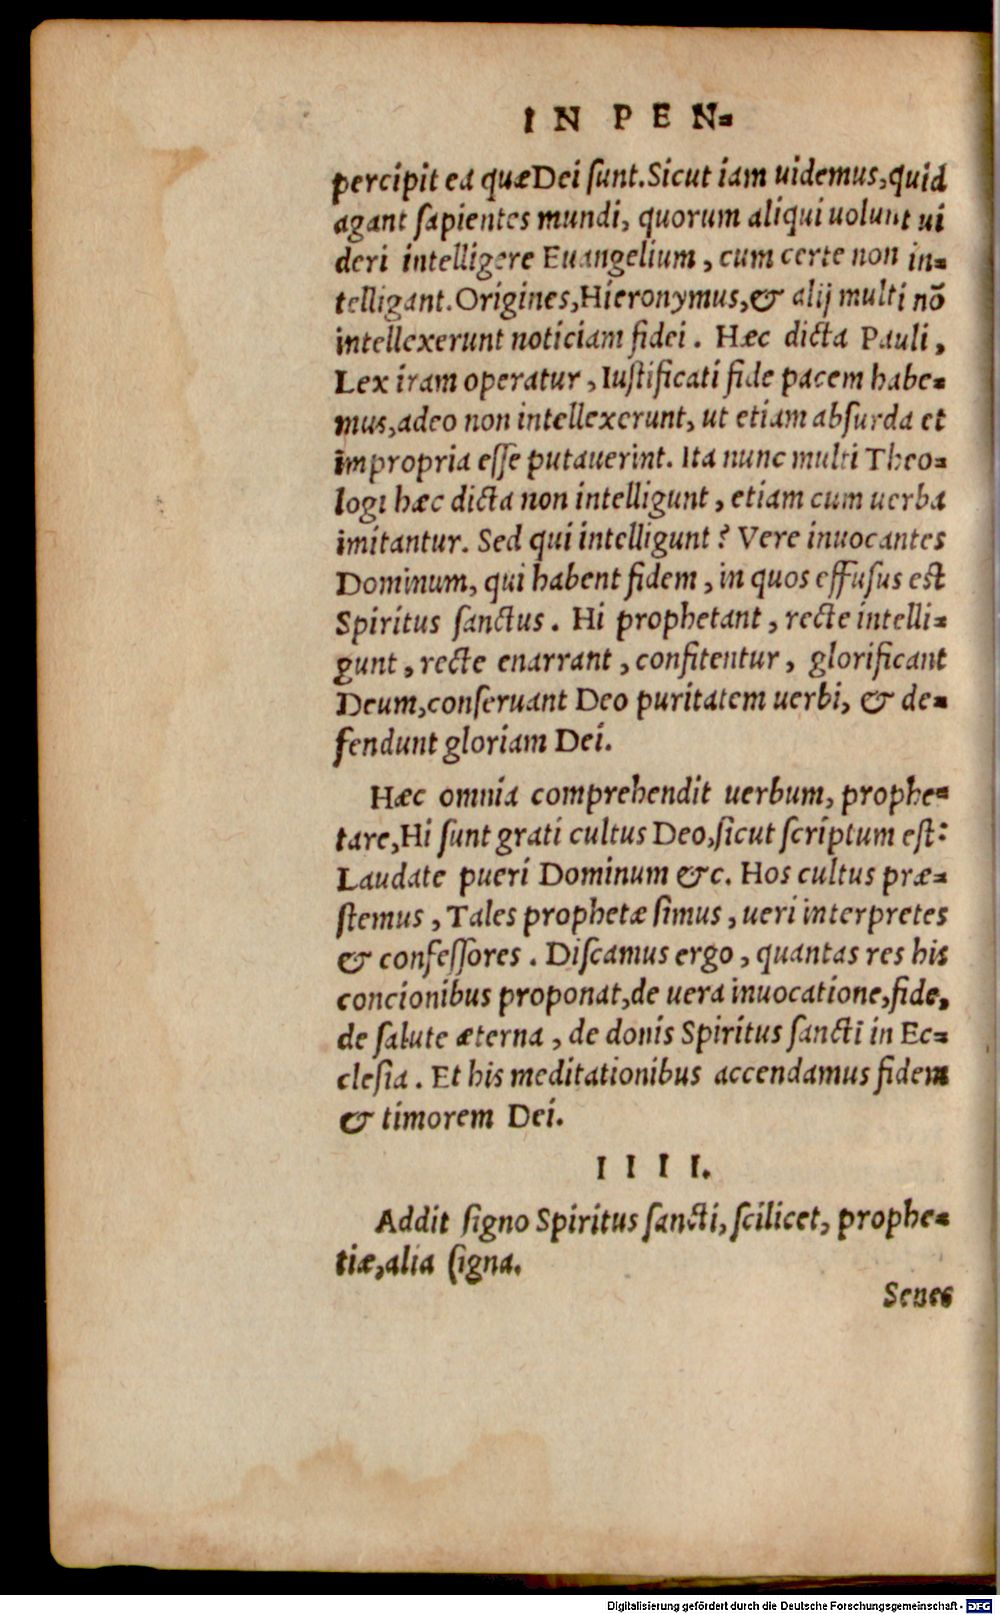 IN PEN-
percipit ea quæ Dei ſunt. Sicut iam uidemus, quid
agant ſapientes mundi, quorum aliqui uolunt ui
deri intelligere Euangelium, cum certe non in-
telligant. Origines, Hieronymus, & alij multi nō
intellexerunt noticiam fidei. Hæc dicta Pauli,
Lex iram operatur, Iuſtificati fide pacem habe-
mus, adeo non intellexerunt, ut etiam abſurda et
impropria eſſe putauerint. Ita nunc multi Theo-
logi hæc dicta non intelligunt, etiam cum uerba
imitantur. Sed qui intelligunt? Vere inuocantes
Dominum, qui habent fidem, in quos effuſus eſt
Spiritus ſanctus. Hi prophetant, recte intelli-
gunt, recte enarrant, confitentur, glorificant
Deum, conſeruant Deo puritatem uerbi, & de-
fendunt gloriam Dei.
Hæc omnia comprehendit uerbum, prophe-
tare, Hi ſunt grati cultus Deo, ſicut ſcriptum eſt:
Laudate pueri Dominum &c. Hos cultus præ-
ſtemus, Tales prophetæ ſimus, ueri interpretes
& confeſſores. Diſcamus ergo, quantas res his
concionibus proponat, de uera inuocatione, fide,
de ſalute æterna, de donis Spiritus ſancti in Ec-
cleſia. Et his meditationibus accendamus fidem
& timorem Dei.
IIII.
Addit ſigno Spiritus ſancti, ſcilicet, prophe-
tiæ, alia ſigna.
Senes
Digitalisierung gefördert durch die Deutsche Forschungsgemeinschaft - DFG